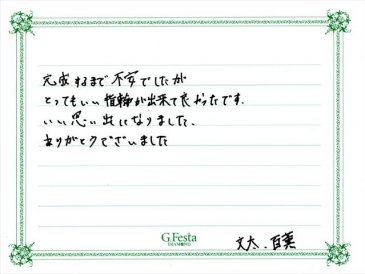 完成するまで不安でしたが
とってもいい指輪が出来て良かったです.
いい思い出になりました.
ありがとうございました
G.Festa
DIAMOND
文太.百葉